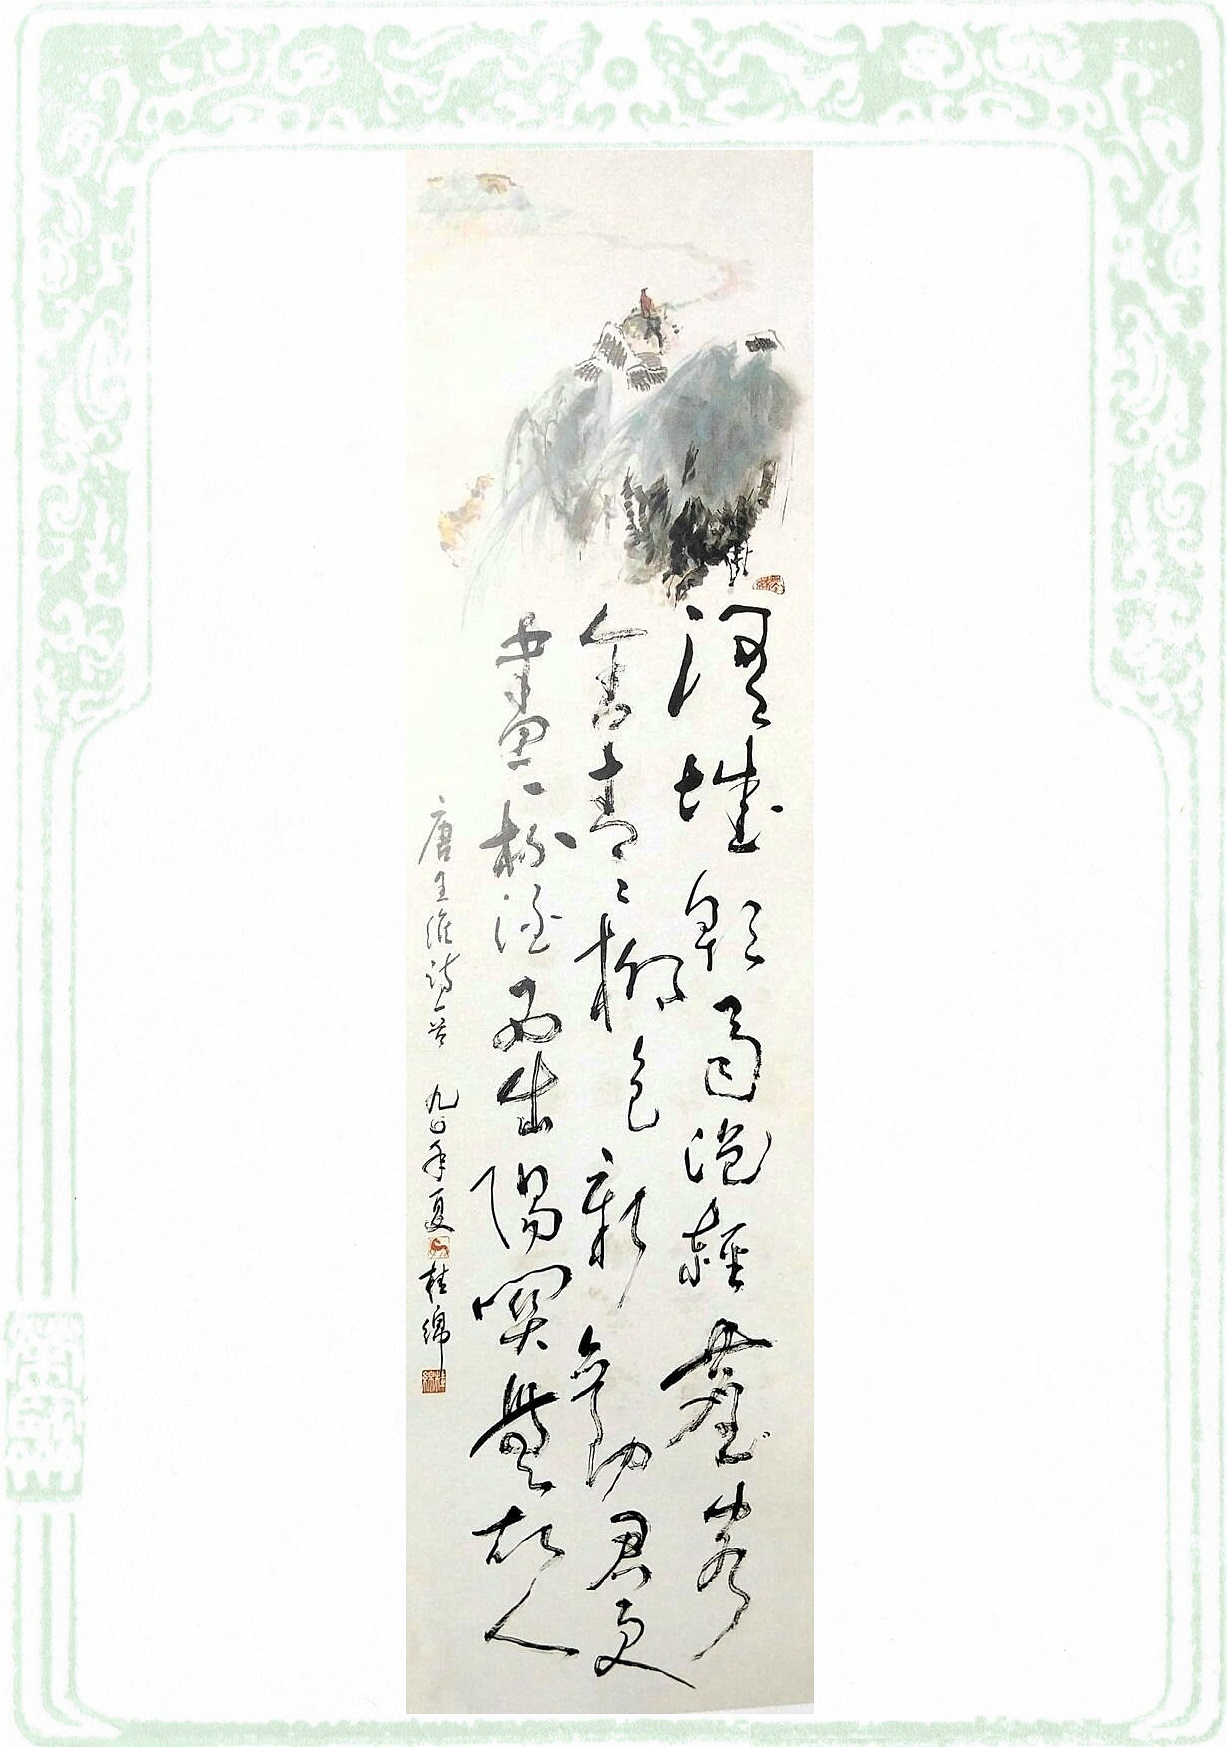 渭城朝雨浥輕塵客
舍青〻柳色新勸君更
盡一杯酒西出陽關無故人
唐王維詩一首 九〇年夏 桂綿